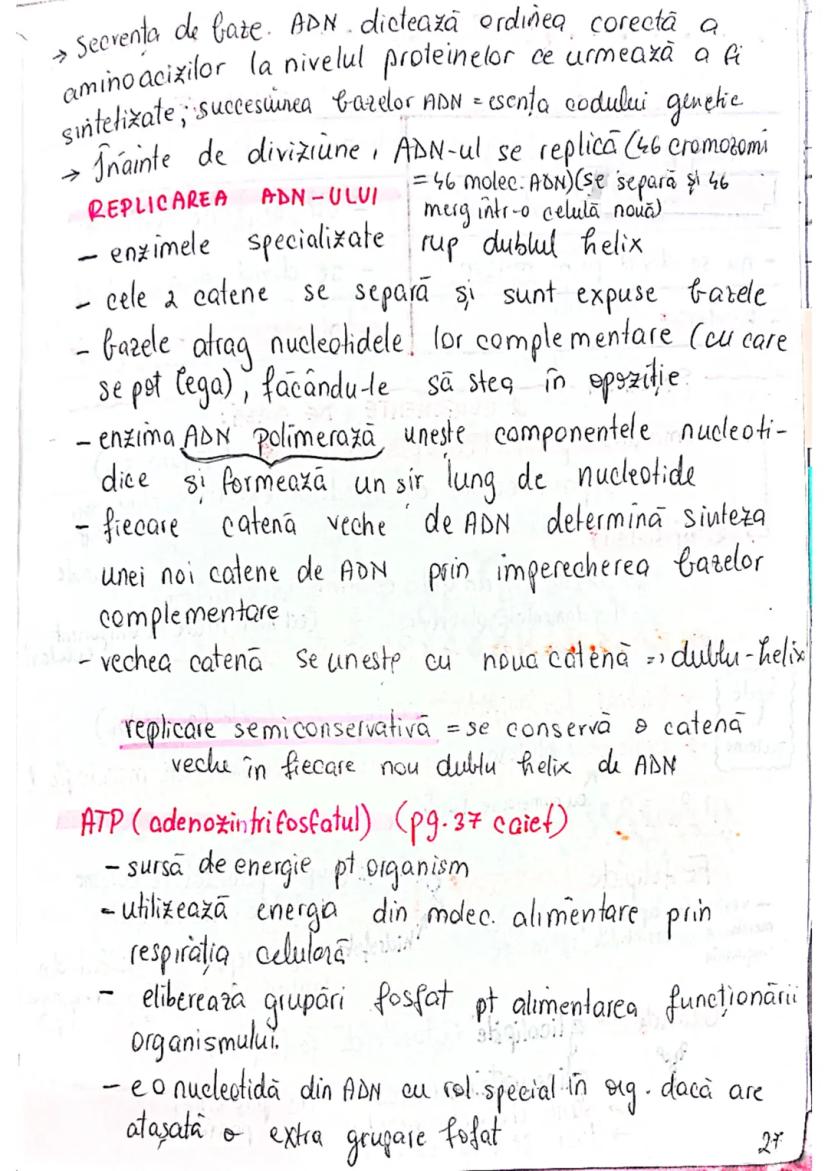 → Secvența de baze ADN dictează ordinea corectă a
aminoacizilor la nivelul proteinelor ce urmează a fi
sintetizate; succesiunea bazelor ADN = esența codului genetic
→ Înainte de diviziune, ADN-ul se replică (46 cromozomi
= 46 molec. ADN)(se separă și 46
REPLICAREA ADN-ULUI merg într-o celulă nouă)
- enzimele specializate rup dublul helix
- cele 2 catene se separă și sunt expuse bazele
- bazele atrag nucleotidele lor complementare (cu care
se pot lega), făcându-le să stea în opoziție
- enzima ADN polimerază unește componentele nucleoti-
dice și formează un sir lung de nucleotide
- fiecare catenă veche de ADN determină sinteza
unei noi catene de ADN prin imperecherea bazelor
complementare
- vechea catenă se unește cu noua catenă => dublu-helix
replicare semiconservativă = se conservă o catenă
veche în fiecare nou dublu helix de ADN
ATP (adenozintrifosfatul) (pg. 37 caiet)
- sursă de energie pt organism
- utilizează energia din molec. alimentare prin
respirația celulară
- eliberează grupări fosfat pt alimentarea funcționării
organismului.
- e o nucleotidă din ADN cu rol special în org. dacă are
atașată o extra grupare fofat
27